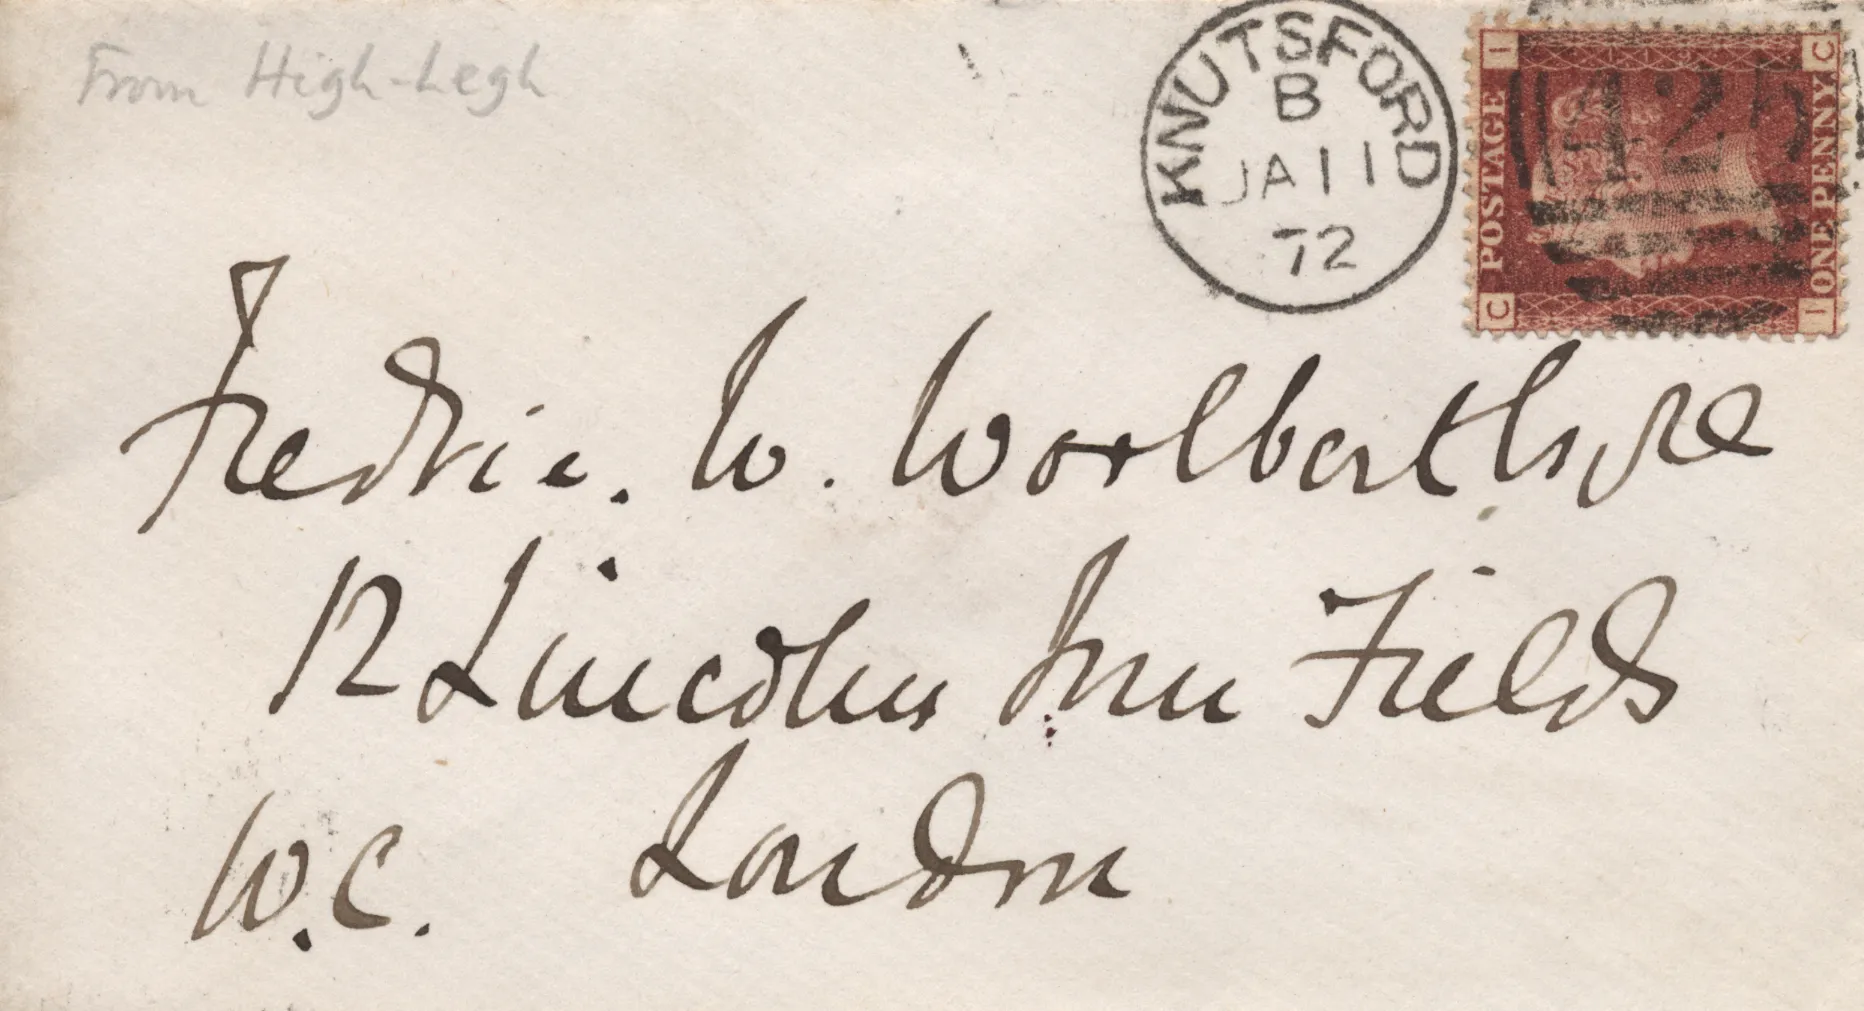 From High-Legh
KNUTSFORD
B
JA 11
72
I C
POSTAGE
ONE PENNY
C I
425
Fredric. W.
12 Lincolns Inn Fields
W.C. London